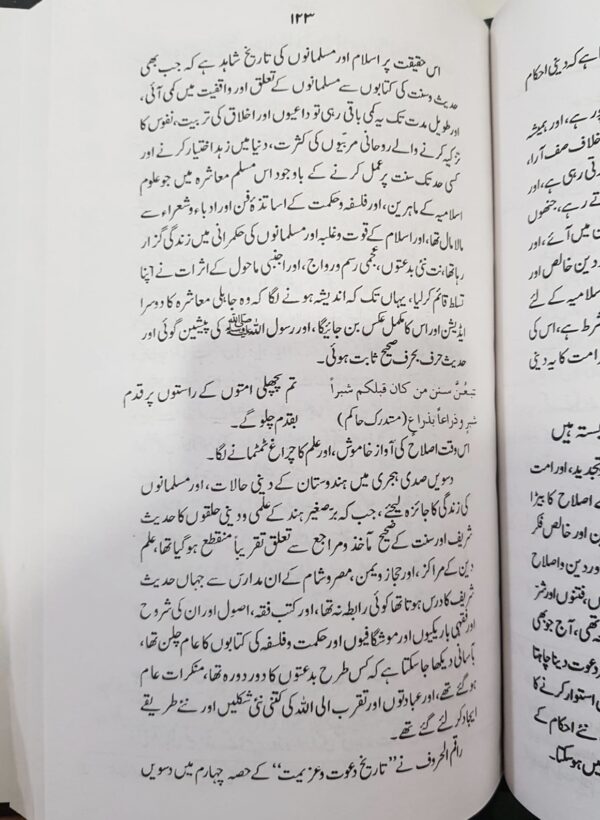 ۱۲۳
اس حقیقت پر اسلام اور مسلمانوں کی تاریخ شاہد ہے کہ جب بھی
حدیث و سنت کی کتابوں سے مسلمانوں کے تعلق اور واقفیت میں کمی آئی،
اور طویل مدت تک یہ کمی باقی رہی تو داعیوں اور اخلاق کی تربیت، نفوس کا
تزکیہ کرنے والے روحانی مربیوں کی کثرت، دنیا میں زہد اختیار کرنے اور
کسی حد تک سنت پر عمل کرنے کے باوجود اس مسلم معاشرہ میں جو علوم
اسلامیہ کے ماہرین، اور فلسفہ و حکمت کے اساتذۂ فن اور ادباء و شعراء سے
مالا مال تھا، اور اسلام کے قوت و غلبہ اور مسلمانوں کی حکمرانی میں زندگی گزار
رہا تھا، نت نئی بدعتوں، عجمی رسم و رواج، اور اجنبی ماحول کے اثرات نے اپنا
تسلط قائم کرلیا، یہاں تک کہ اندیشہ ہونے لگا کہ وہ جاہلی معاشرہ کا دوسرا
ایڈیشن اور اس کا مکمل عکس بن جائیگا، اور رسول اللہ ﷺ کی پیشین گوئی اور
حدیث حرف بحرف صحیح ثابت ہوئی۔
تبعُنَّ سنن من كان قبلكم شبراً تم پچھلی امتوں کے راستوں پر قدم
شبرٍ وذراعاً بذراعٍ (متدرک حاکم) بقدم چلو گے۔
اس وقت اصلاح کی آواز خاموش، اور علم کا چراغ ٹمٹمانے لگا۔
دسویں صدی ہجری میں ہندوستان کے دینی حالات، اور مسلمانوں
کی زندگی کا جائزہ لیجئے، جب کہ برصغیر ہند کے علمی و دینی حلقوں کا حدیث
شریف اور سنت کے صحیح مآخذ و مراجع سے تعلق تقریباً منقطع ہوگیا تھا، علم
دین کے مراکز، اور حجاز و یمن، مصر و شام کے ان مدارس سے جہاں حدیث
شریف کا درس ہوتا تھا کوئی رابطہ نہ تھا، اور کتب فقہ، اصول اور ان کی شروح
اور فقہی باریکیوں اور موشگافیوں اور حکمت و فلسفہ کی کتابوں کا عام چلن تھا،
بآسانی دیکھا جاسکتا ہے کہ کس طرح بدعتوں کا دور دورہ تھا، منکرات عام
ہوگئے تھے، اور عبادتوں اور تقرب الی اللہ کی کتنی نئی شکلیں اور نئے طریقے
ایجاد کرلئے گئے تھے۔
راقم الحروف نے "تاریخ دعوت و عزیمت" کے حصہ چہارم میں دسویں
ہے کہ دینی احکام
رہے، اور ہمیشہ
خلاف صف آرا،
رتی رہی ہے، اور
تے رہے، جنھوں
میں آئے، اور
دین خالص اور
سلامیہ کے لئے
شرط ہے، اس کی
رامت کا یہ دینی
بستہ ہیں
تجدید، اور امت
اصلاح کا بیڑا
اور خالص فکر
اور دین و اصلاح
، فتنوں اور شر
تھی، آج جو بھی
دعوت دینا چاہتا
استوار کرنے کا
نئے احکام کے
میں ہو سکتا۔